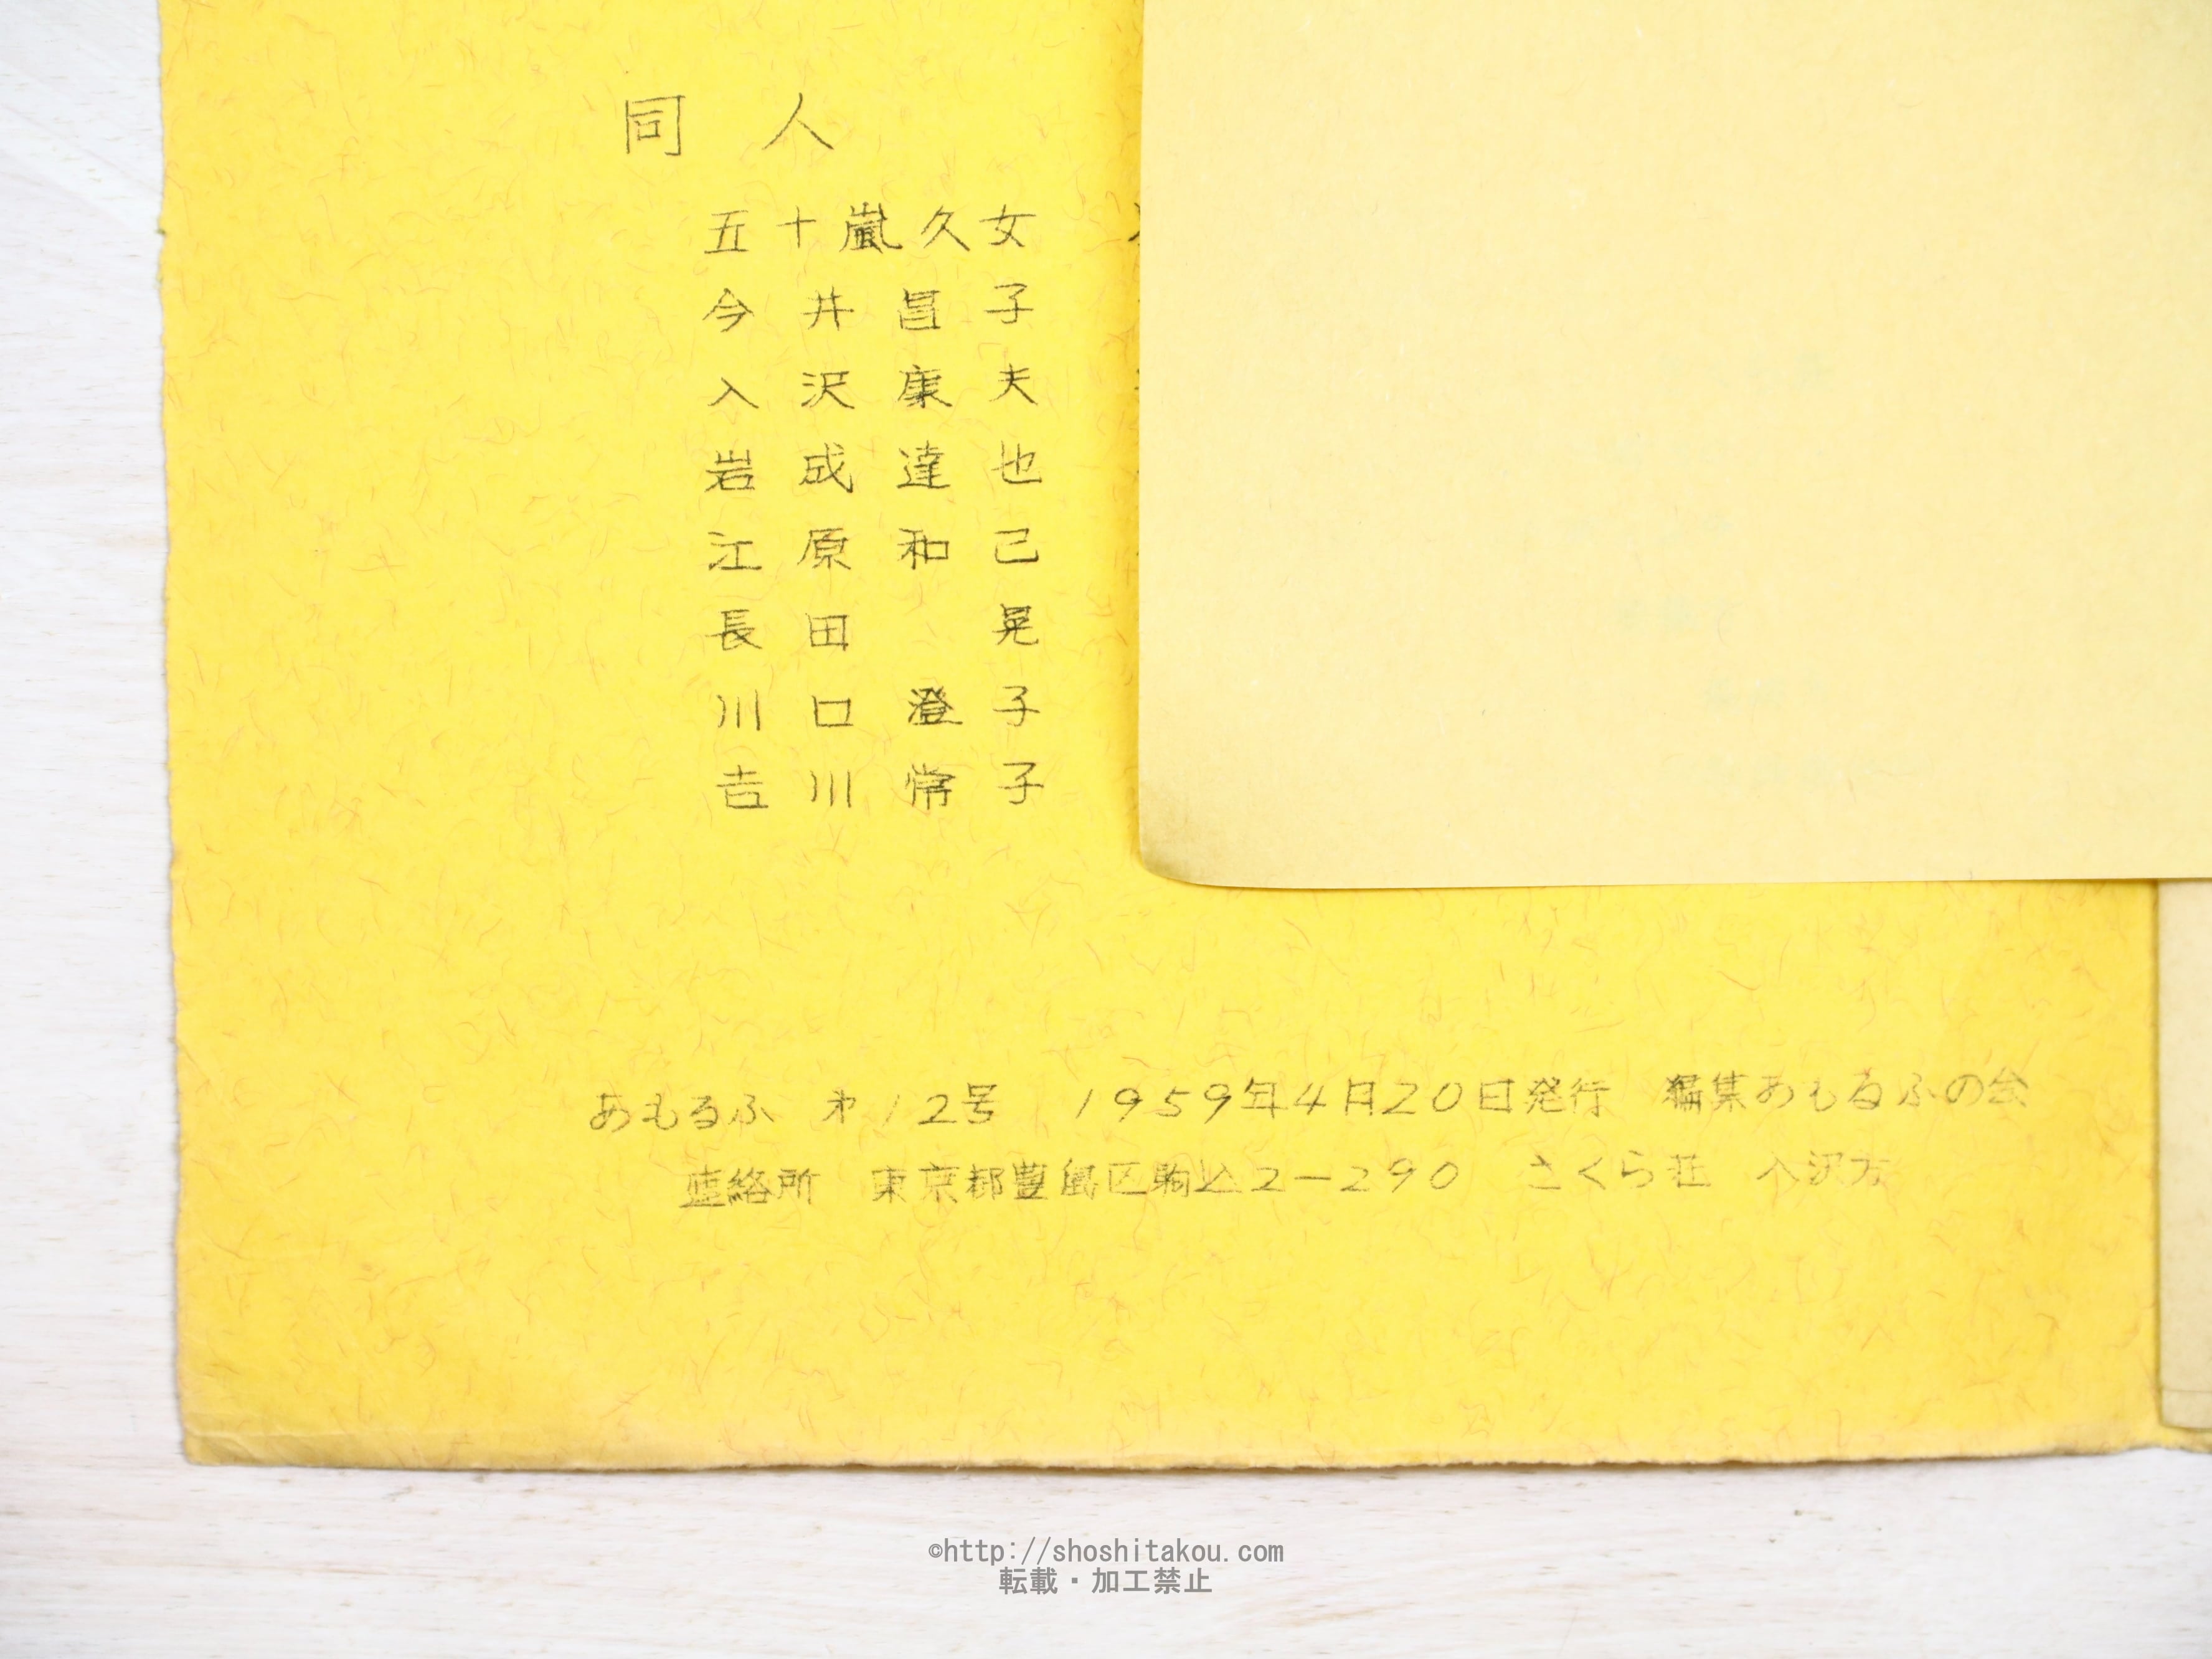 同 人
五十嵐久女
今井昌子
入沢康夫
岩成達也
江原和己
長田 晃
川口澄子
吉川常子
あもるふ 第12号 1959年4月20日発行 編集あもるふの会
連絡所 東京都豊島区駒込2-290 さくら荘 入沢方
©http://shoshitakou.com
転載・加工禁止